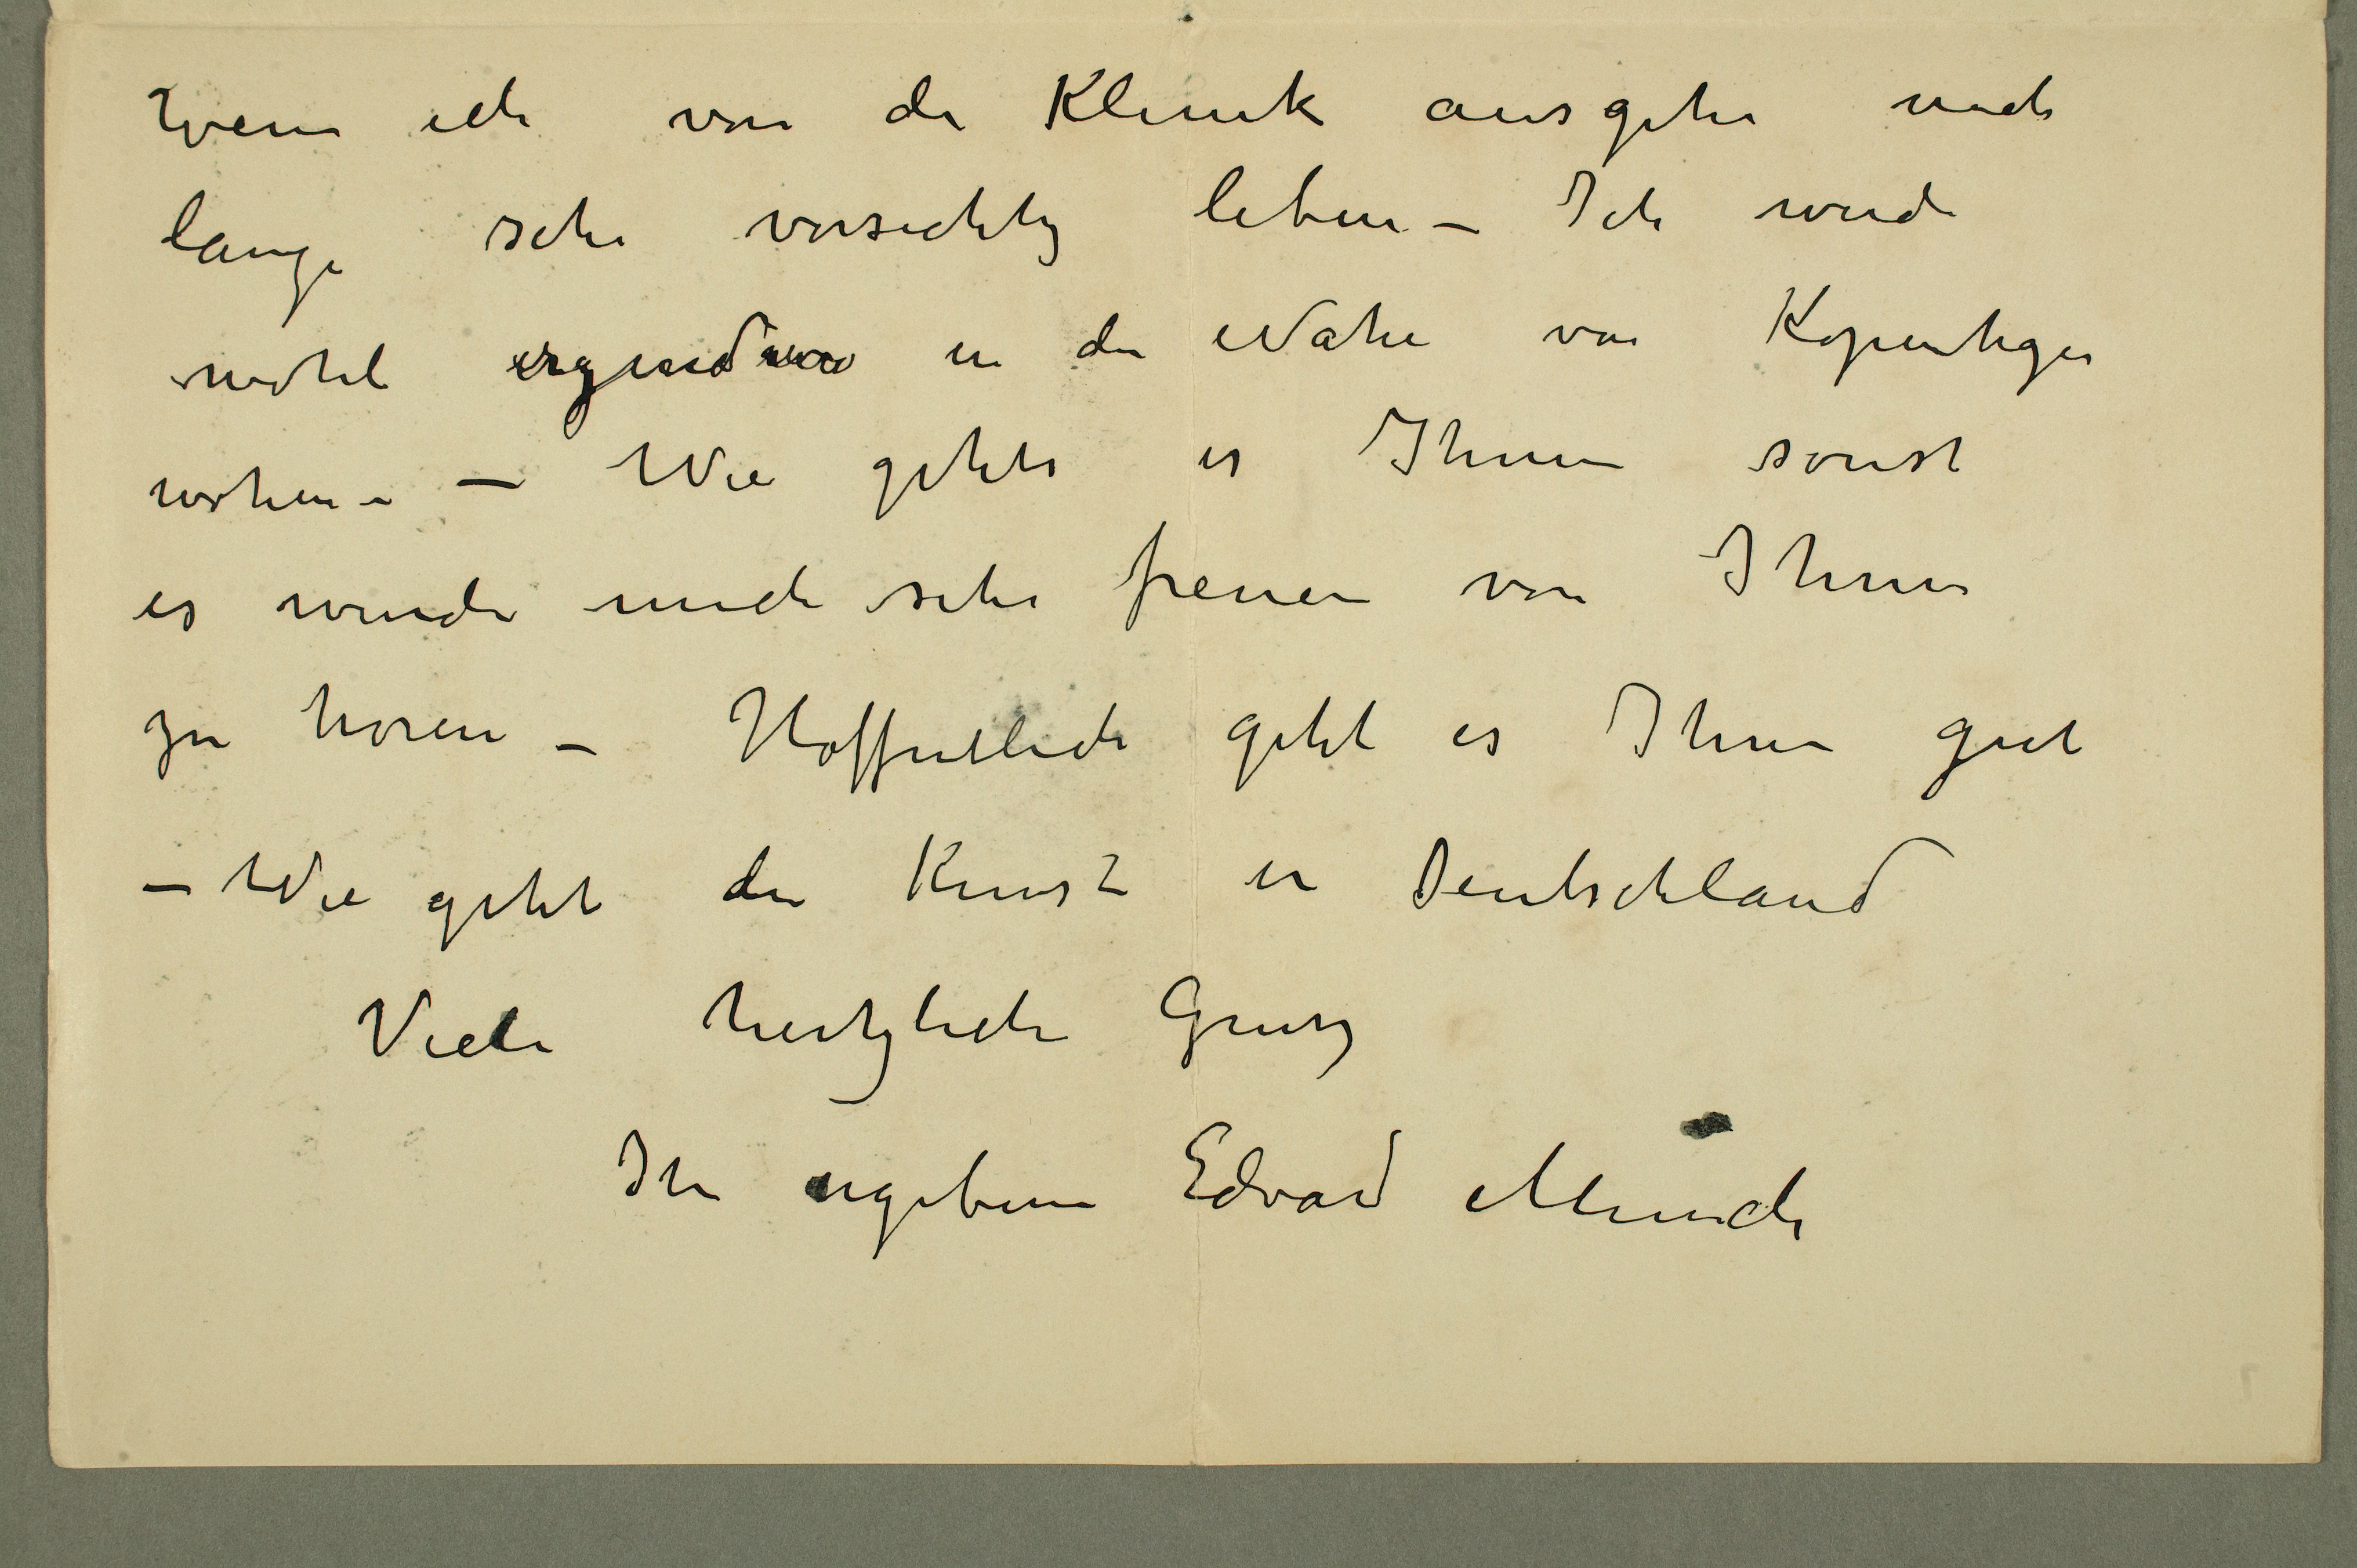 wenn ich von der Klinik ausgehe noch
lange sehr vorsichtig leben – Ich werde
wohl irgendwo in der Nähe von Kopenhagen
wohnen – – Wie gehts es Ihnen sonst
es wurde mich sehr freuen von Ihnen
zu hören – Hoffentlich geht es Ihnen gut
– Wie geht die Kunst in Deutschland
Viele hertzliche Grusz
Ihr ergebene Edvard Munch